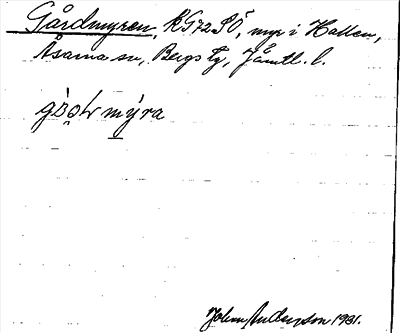 Gårdmyren, KG72SÖ, myr i Hallen,
Åsarna sn, Bergs tg, Jämtl. l.
mýra
Johan Anderson 1931.